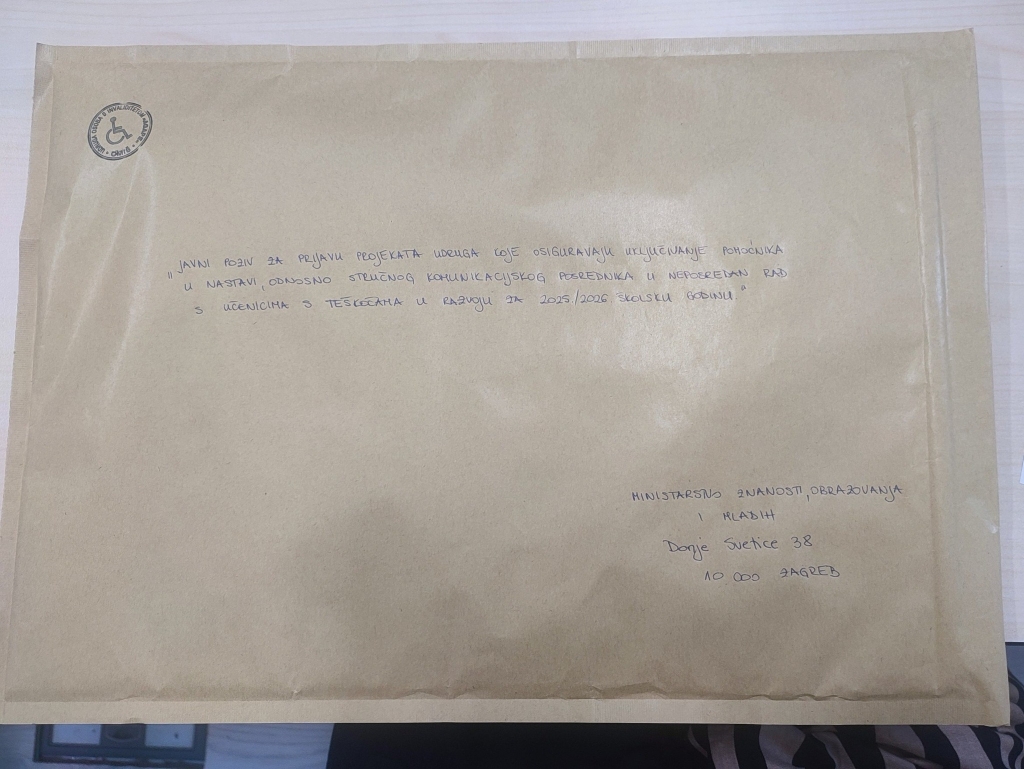 UDRUGA OSOBA S INVALIDITETOM
"JAVNI POZIV ZA PRIJAVU PROJEKATA UDRUGA KOJE OSIGURAVAJU UKLJUČIVANJE POMOĆNIKA
U NASTAVI, ODNOSNO STRUČNOG KOMUNIKACIJSKOG POSREDNIKA U NEPOSREDAN RAD
S UČENICIMA S TEŠKOĆAMA U RAZVOJU ZA 2025/2026 ŠKOLSKU GODINU."
MINISTARSTVO ZNANOSTI, OBRAZOVANJA
I MLADIH
Donje Svetice 38
10 000 ZAGREB